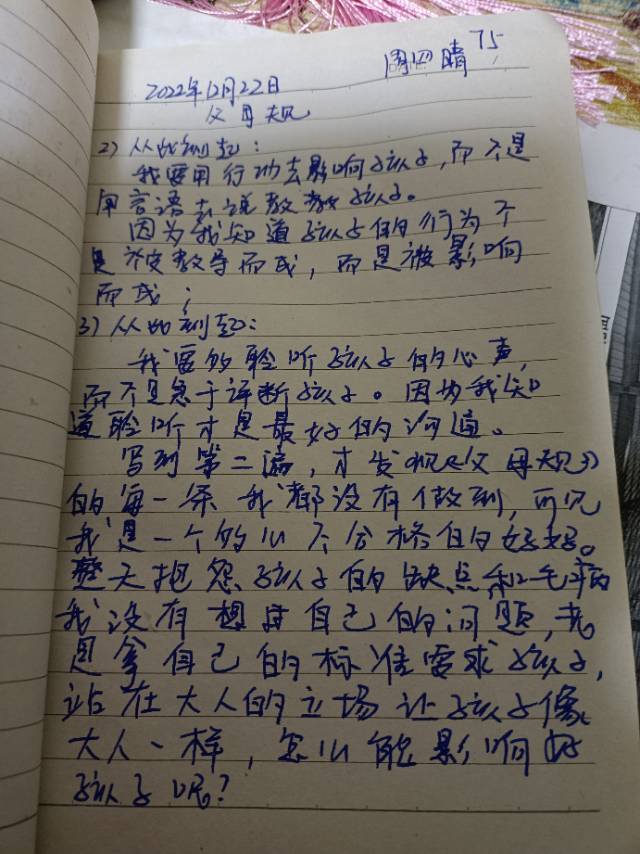 75
周四 晴
2022年12月22日
父母规
2) 从此刻起:
我要用行动去影响孩子,而不是
用言语去说教教孩子。
因为我知道孩子的行为不
是被教导而成,而是被影响
而成;
3) 从此刻起:
我要的聆听孩子的心声,
而不是急于评断孩子。因为我知
道聆听才是最好的沟通。
写到第二遍,才发现《父母规》
的每一条我都没有做到,可见
我是一个的以不合格的妈妈。
整天抱怨孩子的缺点和毛病
我没有想过自己的问题,老
是拿自己的标准要求孩子,
站在大人的立场让孩子像
大人一样,怎么能影响好
孩子呢?